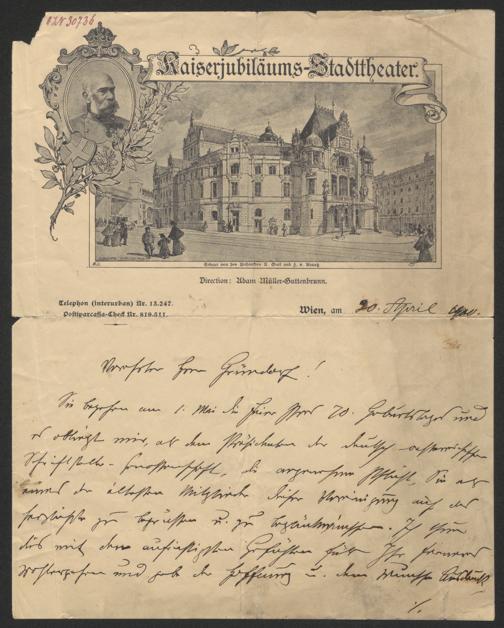 Kaiserjubiläums-Stadttheater.
Direction: Adam Müller-Guttenbrunn.
Telephon (interurban) Nr. 13.247.
Postsparcassa-Check Nr. 819.511.
Wien, am 20. April
Verehrter Herr Gründorf!
Sie begehen am 1. Mai die Feier Ihres 70. Geburtstages und
es obliegt mir, als dem Präsidenten der deutsch-oesterreichischen
Schriftsteller-Genossenschaft, die angenehme Pflicht, Sie als
eines der ältesten Mitglieder dieser Vereinigung auf das
herzlichste zu begrüssen u. zu beglückwünschen. Ich thue
dies mit den aufrichtigsten Gefühlen für Ihr ferneres
Wohlergehen und gebe der Hoffnung u. dem Wunsche Ausdruck
./.